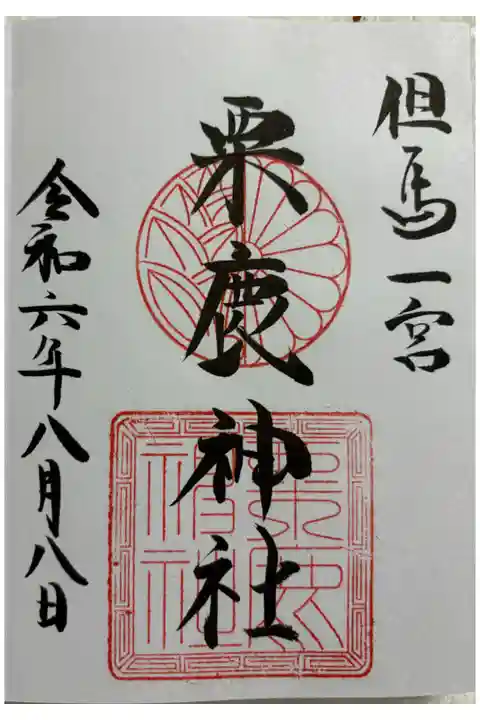 但馬一宮
粟鹿神社
令和六年八月八日
粟鹿
神社